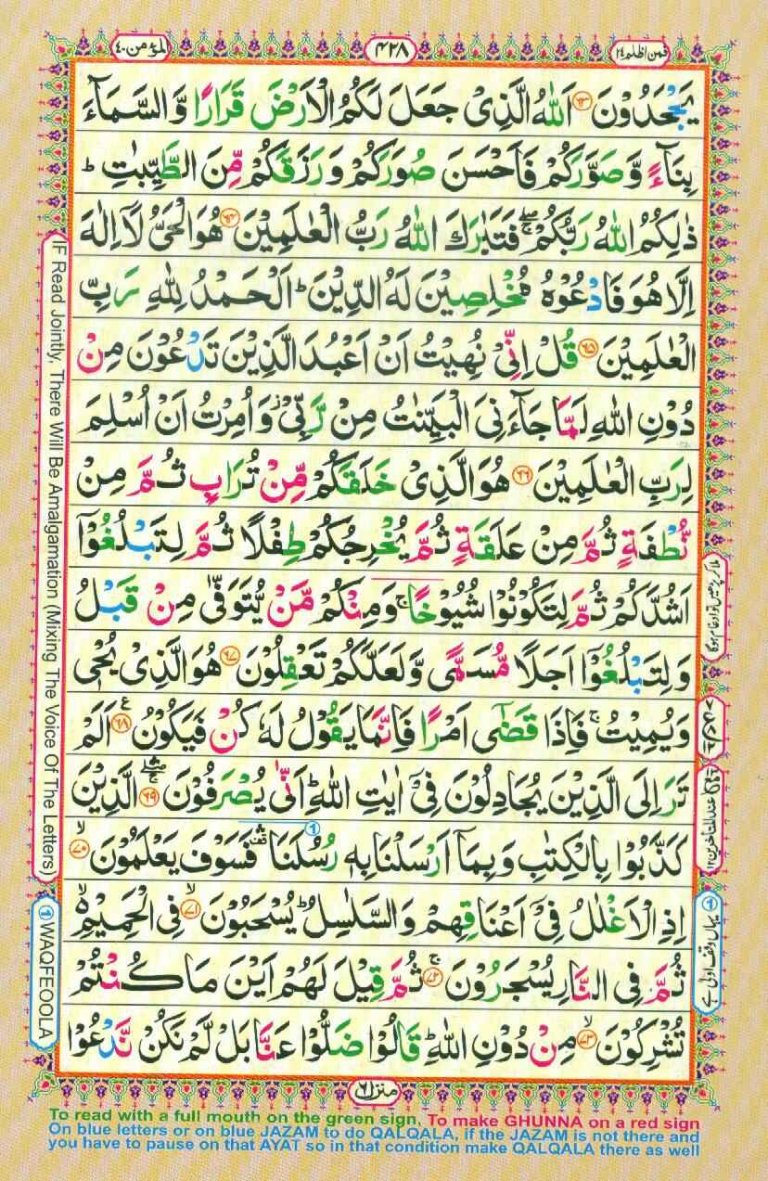 فمن اظلم ٢٤
٤٢٨
المؤمن ٤٠
يَجْحَدُوْنَ ﴿٦٣﴾ اَللّٰهُ الَّذِيْ جَعَلَ لَكُمُ الْاَرْضَ قَرَارًا وَّالسَّمَآءَ
بِنَآءً وَّصَوَّرَكُمْ فَاَحْسَنَ صُوَرَكُمْ وَرَزَقَكُمْ مِّنَ الطَّيِّبٰتِ ؕ
ذٰلِكُمُ اللّٰهُ رَبُّكُمْ ۚۖ فَتَبٰرَكَ اللّٰهُ رَبُّ الْعٰلَمِيْنَ ﴿٦٤﴾ هُوَ الْحَيُّ لَاۤ اِلٰهَ
اِلَّا هُوَ فَادْعُوْهُ مُخْلِصِيْنَ لَهُ الدِّيْنَ ؕ اَلْحَمْدُ لِلّٰهِ رَبِّ
الْعٰلَمِيْنَ ﴿٦٥﴾ قُلْ اِنِّيْ نُهِيْتُ اَنْ اَعْبُدَ الَّذِيْنَ تَدْعُوْنَ مِنْ
دُوْنِ اللّٰهِ لَمَّا جَآءَنِيَ الْبَيِّنٰتُ مِنْ رَّبِّيْ ؗ وَاُمِرْتُ اَنْ اُسْلِمَ
لِرَبِّ الْعٰلَمِيْنَ ﴿٦٦﴾ هُوَ الَّذِيْ خَلَقَكُمْ مِّنْ تُرَابٍ ثُمَّ مِنْ
نُّطْفَةٍ ثُمَّ مِنْ عَلَقَةٍ ثُمَّ يُخْرِجُكُمْ طِفْلًا ثُمَّ لِتَبْلُغُوْۤا
اَشُدَّكُمْ ثُمَّ لِتَكُوْنُوْا شُيُوْخًا ۚ وَمِنْكُمْ مَّنْ يُّتَوَفّٰى مِنْ قَبْلُ
وَلِتَبْلُغُوْۤا اَجَلًا مُّسَمًّى وَّلَعَلَّكُمْ تَعْقِلُوْنَ ﴿٦٧﴾ هُوَ الَّذِيْ يُحْيٖ
وَيُمِيْتُ ۚ فَاِذَا قَضٰۤى اَمْرًا فَاِنَّمَا يَقُوْلُ لَهٗ كُنْ فَيَكُوْنُ ﴿٦٨﴾ اَلَمْ
تَرَ اِلَى الَّذِيْنَ يُجَادِلُوْنَ فِيْۤ اٰيٰتِ اللّٰهِ ؕ اَنّٰى يُصْرَفُوْنَ ﴿٦٩﴾ الَّذِيْنَ
كَذَّبُوْا بِالْكِتٰبِ وَبِمَاۤ اَرْسَلْنَا بِهٖ رُسُلَنَا فَسَوْفَ يَعْلَمُوْنَ ﴿٧٠﴾
اِذِ الْاَغْلٰلُ فِيْۤ اَعْنَاقِهِمْ وَالسَّلٰسِلُ ؕ يُسْحَبُوْنَ ﴿٧١﴾ فِي الْحَمِيْمِ
ثُمَّ فِي النَّارِ يُسْجَرُوْنَ ﴿٧٢﴾ ثُمَّ قِيْلَ لَهُمْ اَيْنَ مَا كُنْتُمْ
تُشْرِكُوْنَ ﴿٧٣﴾ مِنْ دُوْنِ اللّٰهِ ؕ قَالُوْا ضَلُّوْا عَنَّا بَلْ لَّمْ نَكُنْ نَّدْعُوْا
منزل ٦
IF Read Jointly, There Will Be Amalgamation (Mixing The Voice Of The Letters)
① WAQFEOOLA
① یہاں وقف اولیٰ ہے
To read with a full mouth on the green sign, To make GHUNNA on a red sign
On blue letters or on blue JAZAM to do QALQALA, if the JAZAM is not there and
you have to pause on that AYAT so in that condition make QALQALA there as well